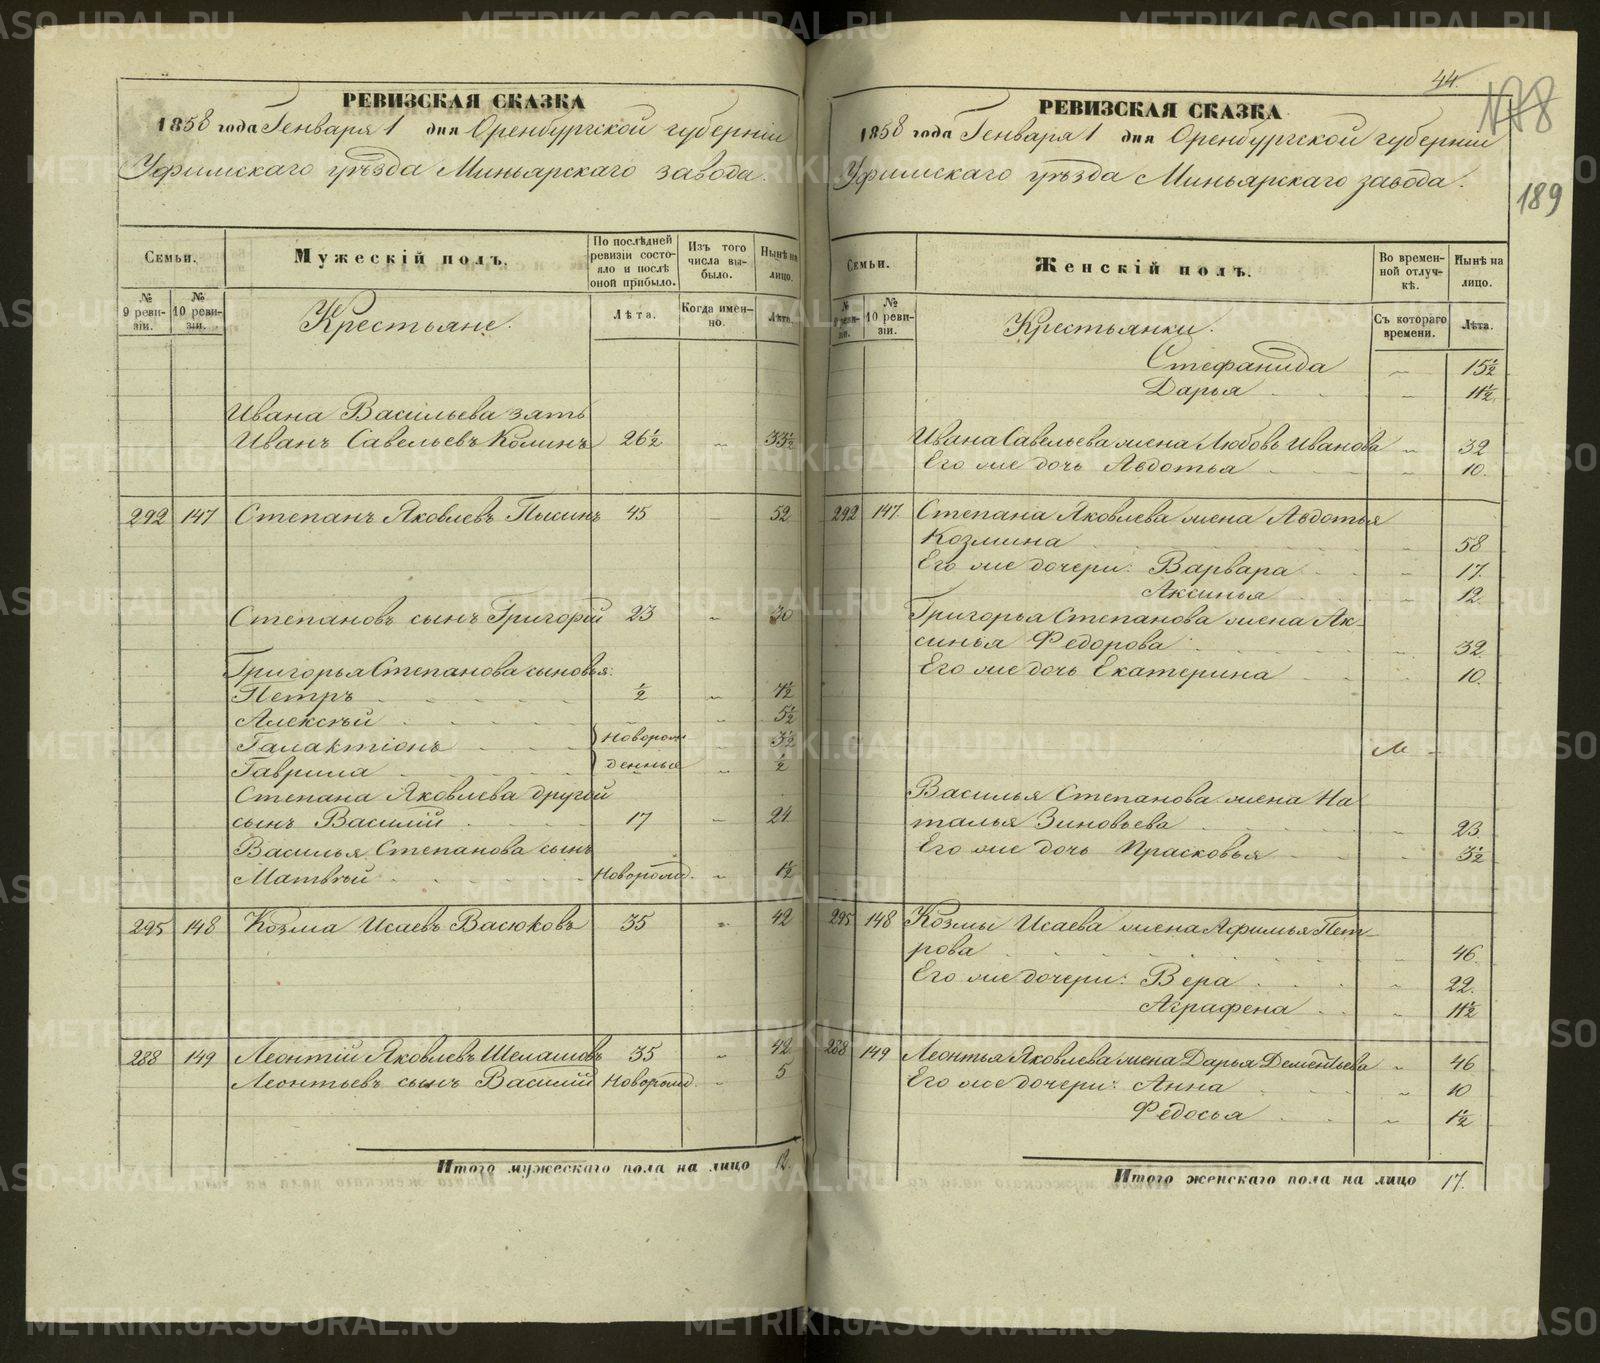 РЕВИЗСКАЯ СКАЗКА
1858 года Генваря 1 дня Оренбургской губернiи
Уфимскаго уѣзда Миньярскаго завода.
Семьи.
Мужескiй полъ.
По послѣдней ревизiи состояло и послѣ оной прибыло.
Изъ того числа выбыло.
Нынѣ на лицо.
№ 9 ревизiи.
№ 10 ревизiи.
Крестьяне.
Лѣта.
Когда именно.
Лѣта.
Ивана Васильева зять
Иванъ Савельевъ Колинъ 26½ „ 33½
292 147 Степанъ Яковлевъ Пысинъ 45 — 52
Степановъ сынъ Григорiй 23 „ 30
Григорья Степанова сыновья:
Петръ ½ „ 7½
Алексѣй „ 5½
Галактiонъ Новорож „ 3½
Гаврила денные „ ½
Степана Яковлева другой
сынъ Василiй 17 „ 24
Василья Степанова сынъ
Матвѣй Новорожд. „ 1½
295 148 Козма Исаевъ Васюковъ 35 „ 42
288 149 Леонтiй Яковлевъ Шелашовъ 35 „ 42
Леонтьевъ сынъ Василiй Новорожд. „ 5
Итого мужескаго пола на лицо 12.
44.
178
189
РЕВИЗСКАЯ СКАЗКА
1858 года Генваря 1 дня Оренбургской губернiи
Уфимскаго уѣзда Миньярскаго завода.
Семьи.
Женскiй полъ.
Во временной отлучкѣ.
Нынѣ на лицо.
№ 9 ревизiи.
№ 10 ревизiи.
Крестьянки.
Съ котораго времени.
Лѣта.
Стефанида „ 15½
Дарья „ 11½
Ивана Савельева жена Любовь Иванова „ 32
Его же дочь Авдотья „ 10.
292 147. Степана Яковлева жена Авдотья
Козмина „ 58
Его же дочери: Варвара „ 17.
Аксинья „ 12.
Григорья Степанова жена Ак-
синья Федорова „ 32.
Его же дочь Екатерина „ 10.
Василья Степанова жена На-
талья Зиновьева „ 23.
Его же дочь Прасковья „ 3½
295 148 Козмы Исаева жена Афимья Пет-
рова „ 46.
Его же дочери: Вера „ 22.
Аграфена „ 11½
288 149 Леонтья Яковлева жена Дарья Дементьева „ 46
Его же дочери: Анна „ 10
Федосья „ 1½
Итого женскаго пола на лицо 17.
METRIKI.GASO-URAL.RU